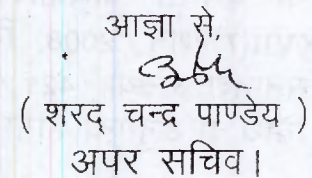 आज्ञा से,
( शरद चन्द्र पाण्डेय )
अपर सचिव।